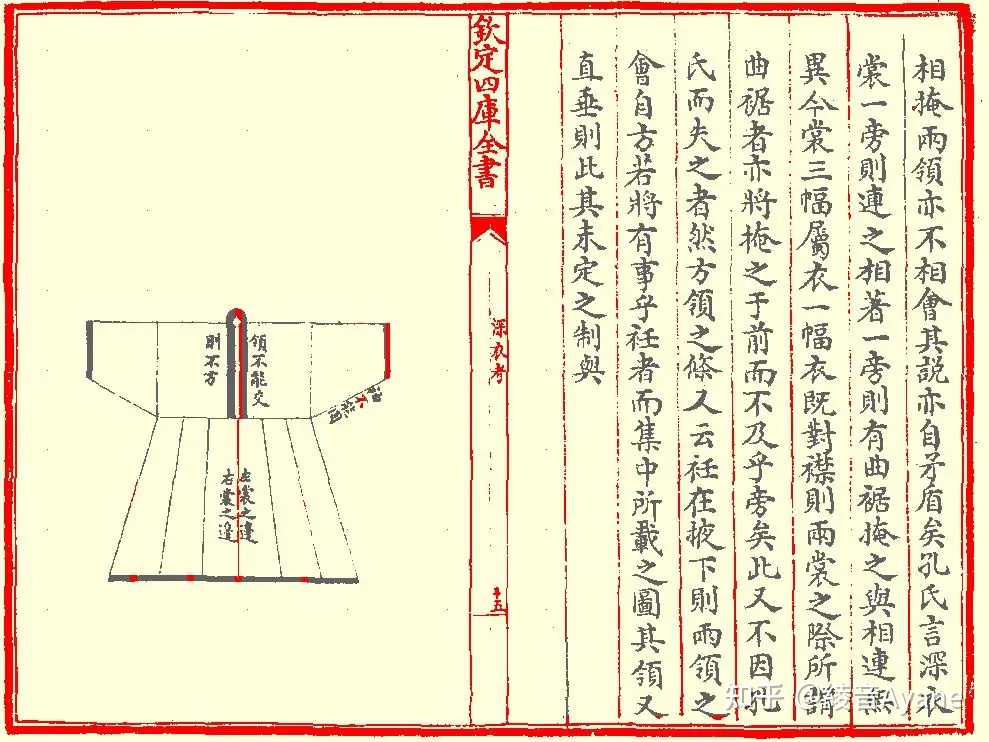 相掩兩領亦不相會其説亦自矛盾矣孔氏言深衣
裳一旁則連之相著一旁則有曲裾掩之與相連無
異今裳三幅屬衣一幅衣既對襟則兩裳之際所謂
曲裾者亦將掩之于前而不及乎旁矣此又不因孔
氏而失之者然方領之條又云衽在掖下則兩領之
會自方若將有事乎衽者而集中所載之圖其領又
直垂則此其未定之制與
欽定四庫全書
深衣考
十五
領不能交
則不方
袖不能圓
左裳之邊
右裳之邊
知乎 @綾音Ayane